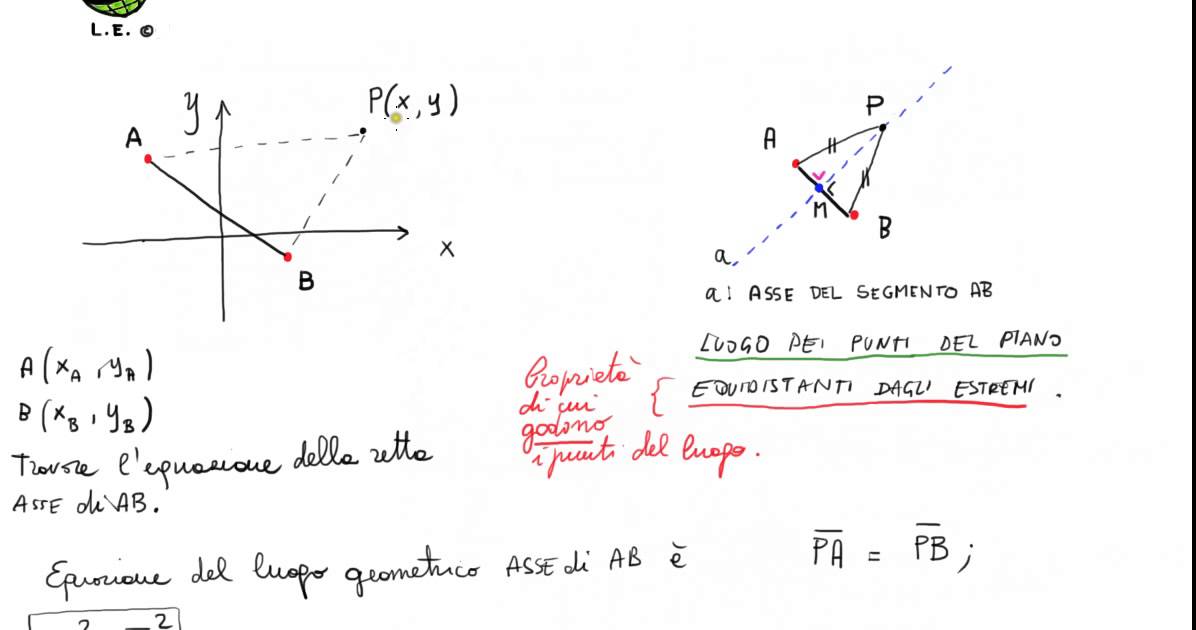 L.E. ©
y
P(x, y)
A
x
B
P
A
M
B
a
a: ASSE DEL SEGMENTO AB
LUOGO DEI PUNTI DEL PIANO
EQUIDISTANTI DAGLI ESTREMI.
Proprietà
di cui
godono
i punti del luogo.
A(x_A, y_A)
B(x_B, y_B)
Trovare l'equazione della retta
ASSE di AB.
Equazione del luogo geometrico ASSE di AB è
PA = PB;